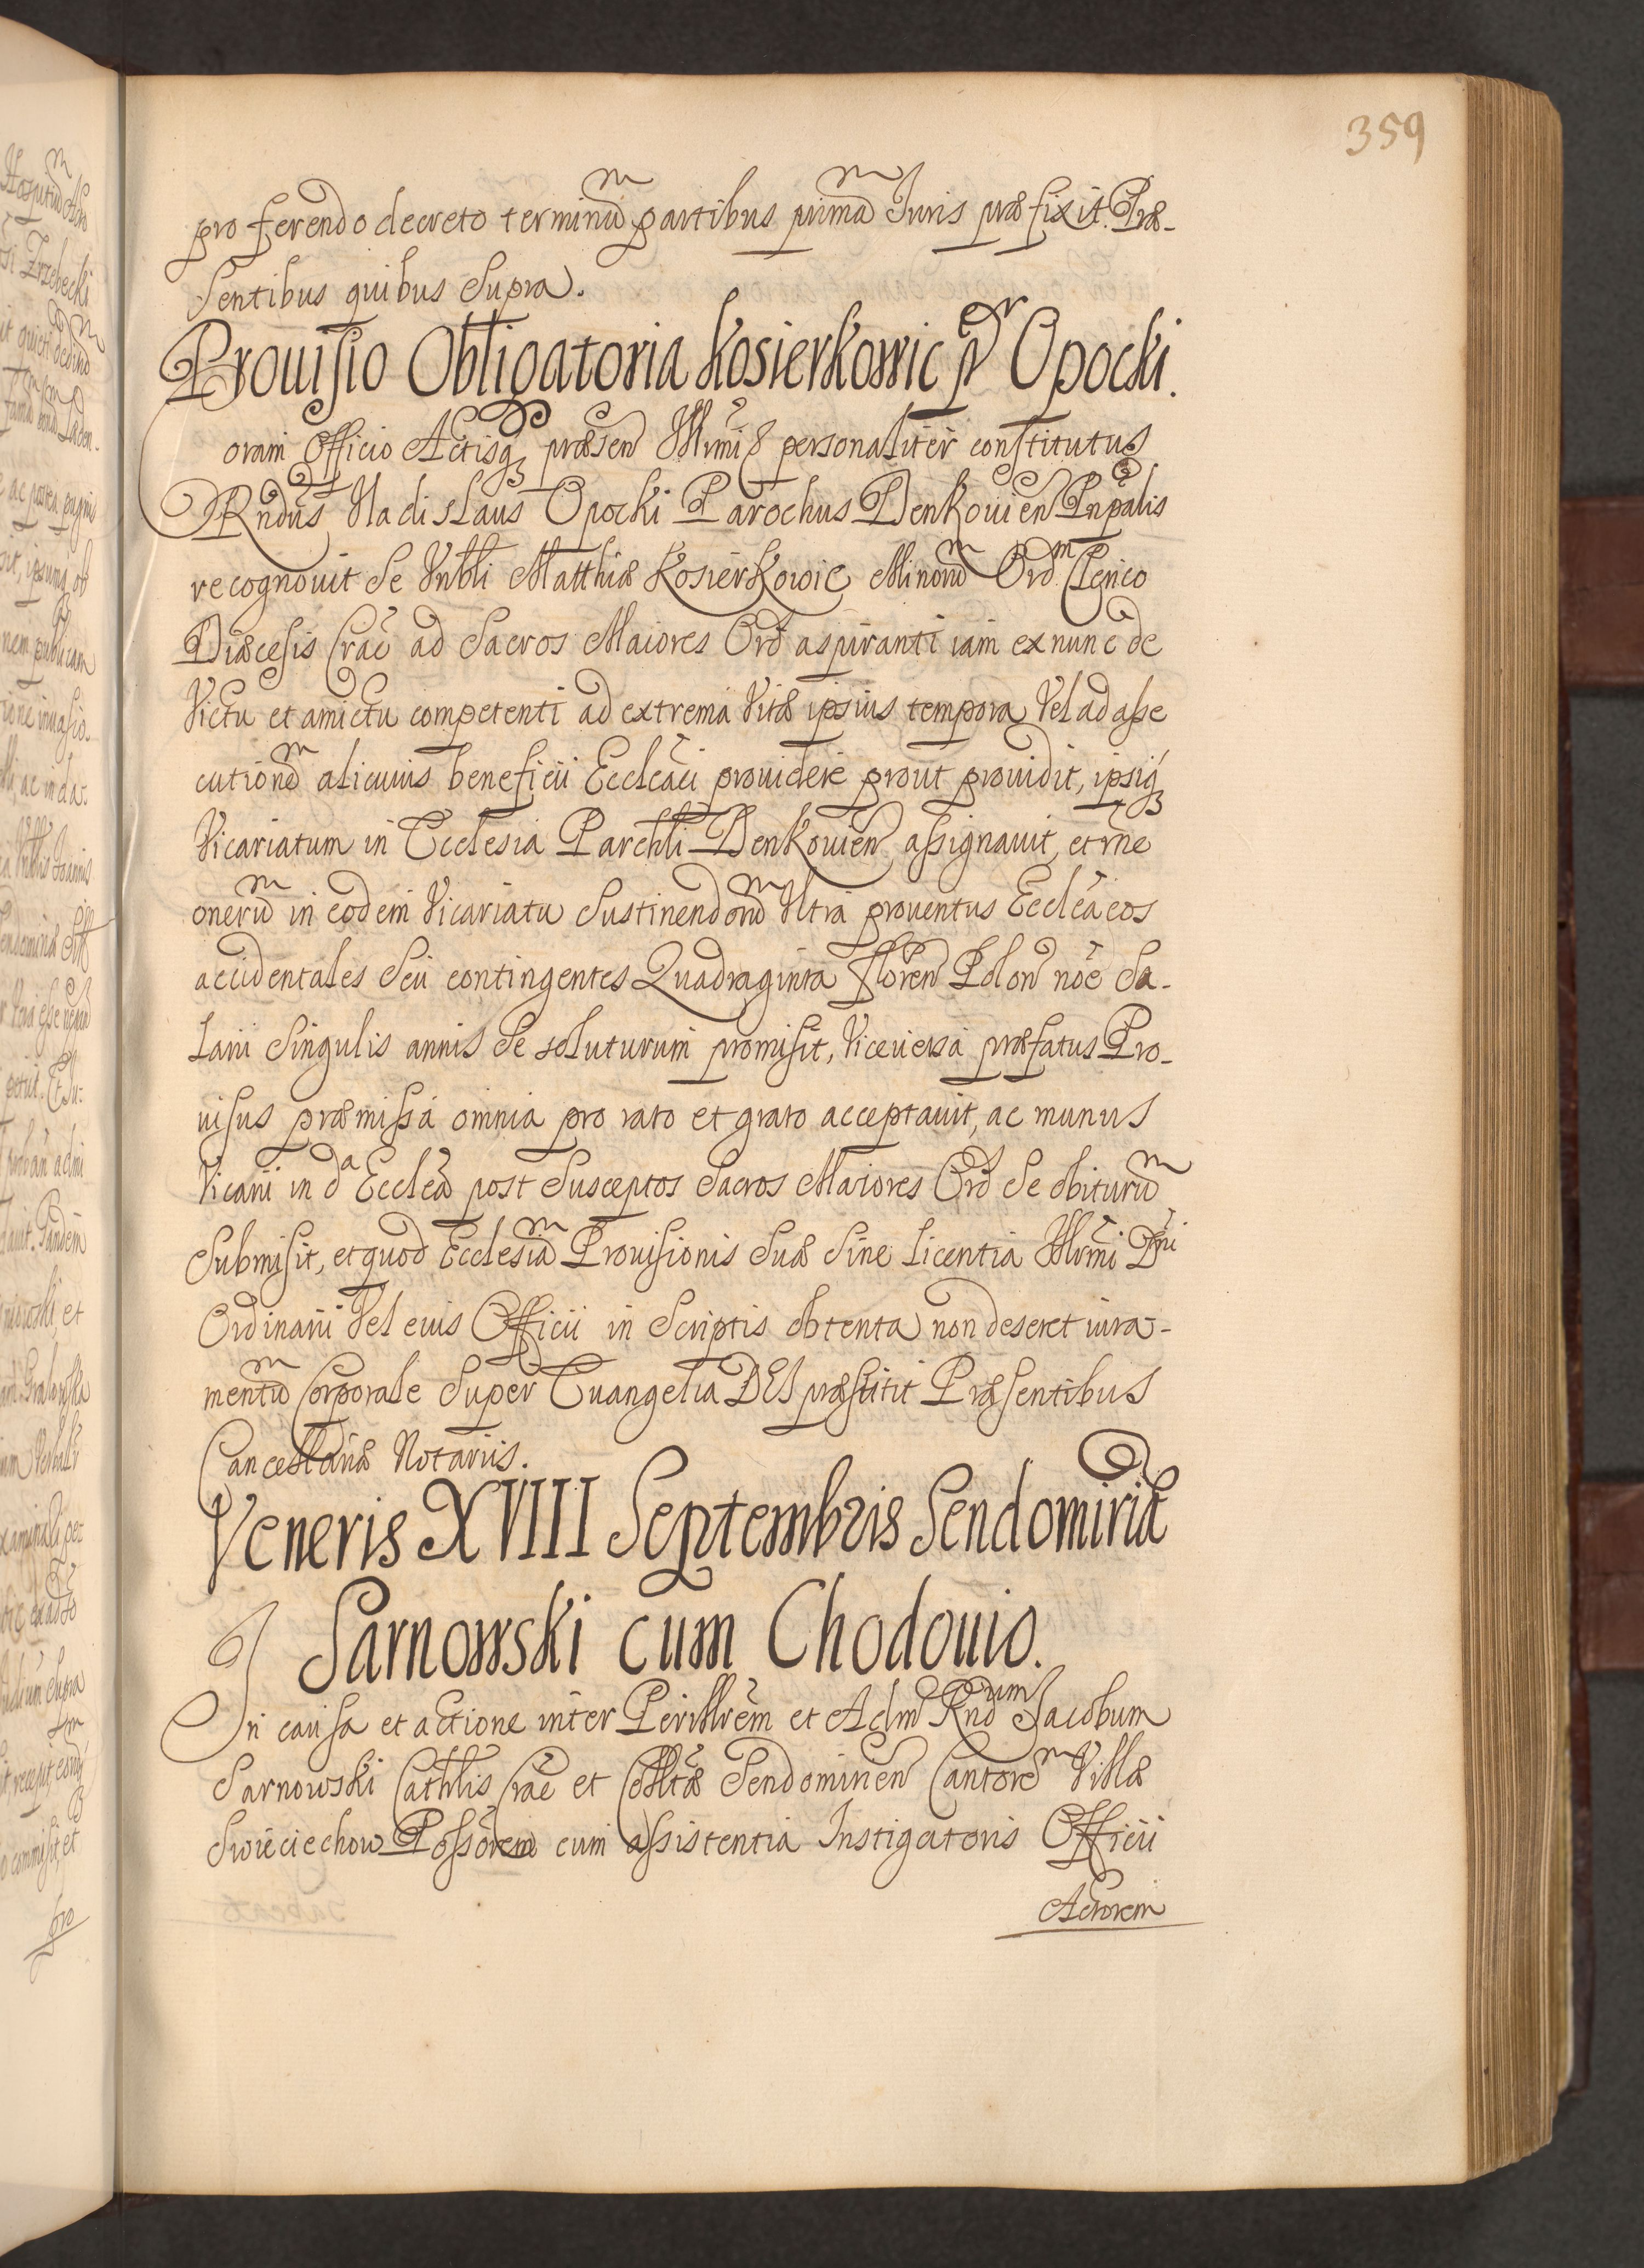 359
pro ferendo decreto terminũ partibus primã Iuris præfixit. Præ-
sentibus quibus Supra.
Prouisio Obligatoria Kosierkowic pr Opocki.
Coram Officio Actisq₃ præsen Illrmis personaliter constitutus
Rndus Vladislaus Opocki Parochus Denkouien Pnpalis
recognouit Se Vnbli Matthiæ Kosierkowic Minorũ Ord Clerico
Diæcesis Crac ad Sacros Maiores Ord aspiranti iam ex nunc de
Victu et amictu competenti ad extrema Vitæ ipsius tempora Vel ad asse
cutionẽ alicuius beneficii Eccleaci prouidere prout prouidit, ipsiq₃
Vicariatum in Ecclesia Parchli Denkouien assignauit, et rne
onerũ in eodem Vicariatu Sustinendorũ Vltra prouentus Eccleacos
accidentales Seu contingentes Quadraginta Floren Polon noe Sa-
larii Singulis annis Se soluturum promisit, Viceuersa præfatus Pro-
uisus præmissa omnia pro rato et grato acceptauit, ac munus
Vicarii in da Ecclea post Susceptos Sacros Maiores Ord Se obiturũ
Submisit, et quod Ecclesiã Prouisionis Suæ Sine Licentia Illrmi Dni
Ordinarii Vel eius Officii in Scriptis obtenta non deseret iura-
mentũ Corporale Super Euangelia DEI præstitit Præsentibus
Cancellariæ Notariis.
Veneris XVIII Septembris Sendomiriæ
Sarnowski cum Chodouio.
In causa et actione inter Perillrem et Adm Rndum Iacobum
Sarnowski Cathlis Crac et Colltæ Sendomirien Cantorẽ Villæ
Swięciechow Possorem cum assistentia Instigatoris Officii
Actorem